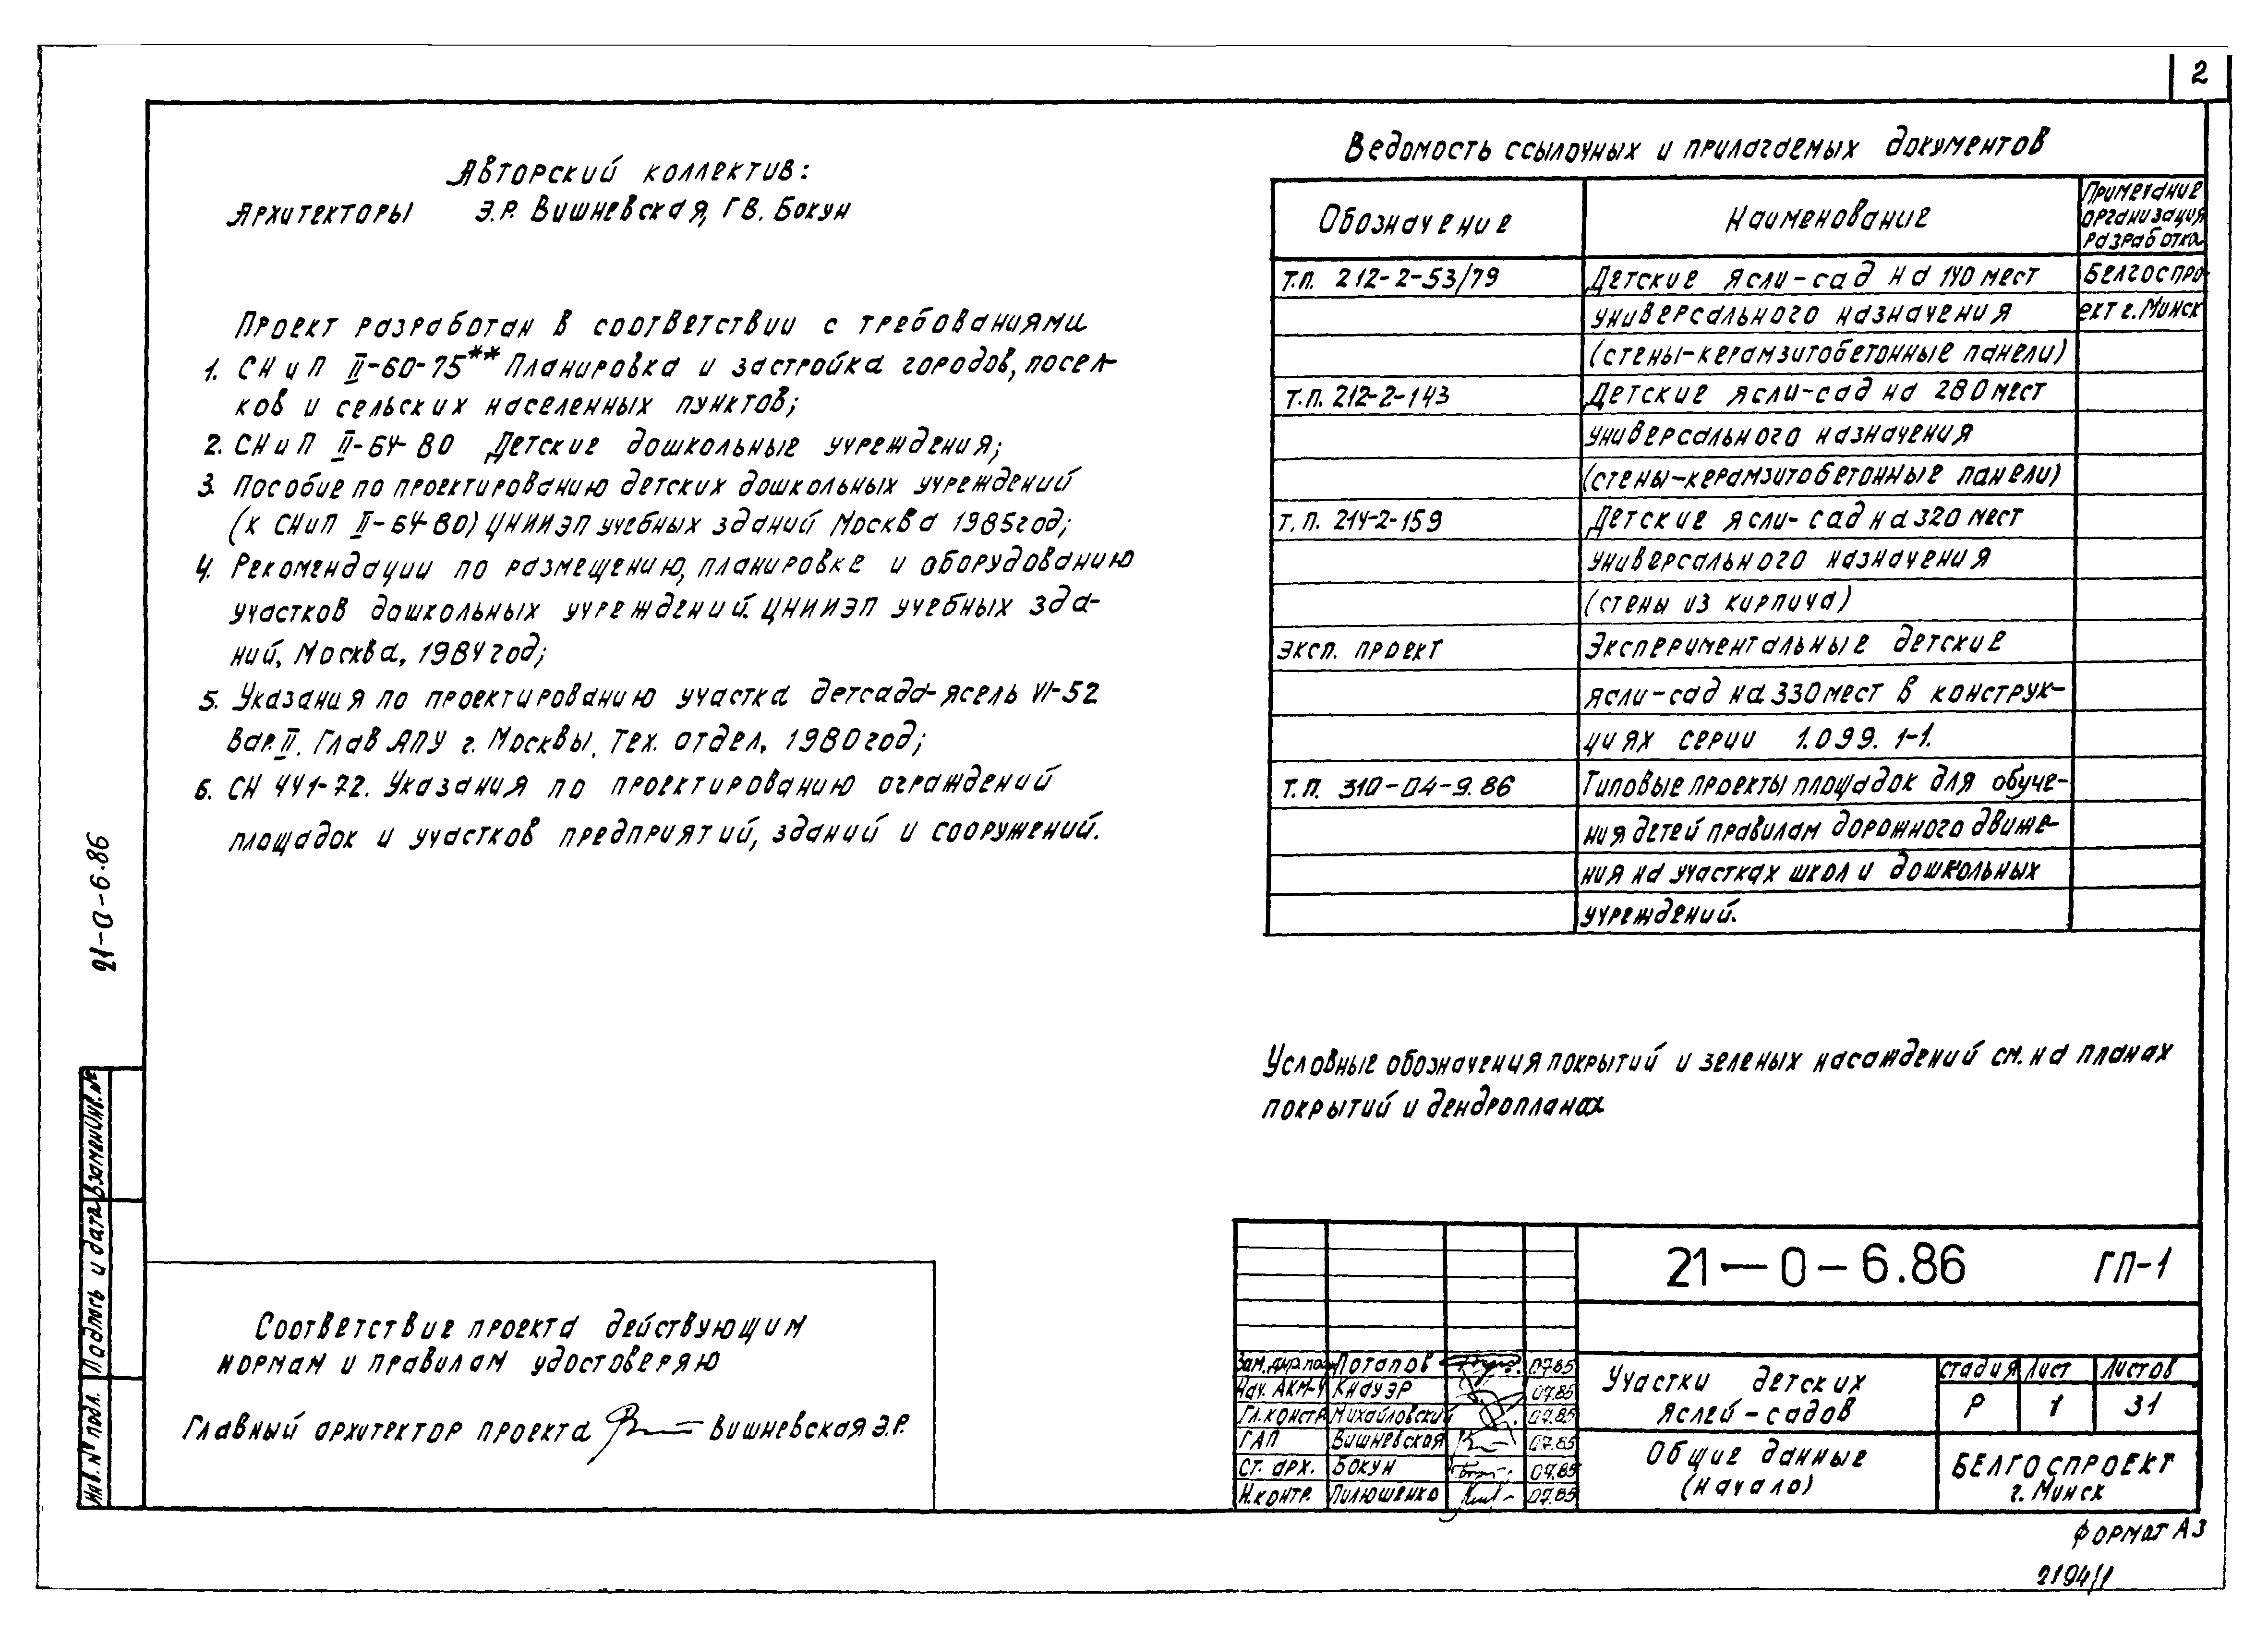 2
Авторский коллектив:
Архитекторы Э.Р. Вишневская, Г.В. Бокун
Проект разработан в соответствии с требованиями
1. СНиП II-60-75** Планировка и застройка городов, посел-
ков и сельских населенных пунктов;
2. СНиП II-64-80 Детские дошкольные учреждения;
3. Пособие по проектированию детских дошкольных учреждений
(к СНиП II-64-80) ЦНИИЭП учебных зданий Москва 1985год;
4. Рекомендации по размещению, планировке и оборудованию
участков дошкольных учреждений. ЦНИИЭП учебных зда-
ний, Москва, 1984год;
5. Указания по проектированию участка детсада-ясель VI-52
Вар. II. Глав АПУ г. Москвы. Тех. отдел, 1980год;
6. СН 441-72. Указания по проектированию ограждений
площадок и участков предприятий, зданий и сооружений.
Ведомость ссылочных и прилагаемых документов
Обозначение Наименование Примечание организация разработка
Т.п. 212-2-53/79 Детские ясли-сад на 140 мест Белгоспро-
универсального назначения ект г. Минск
(стены-керамзитобетонные панели)
Т.п. 212-2-143 Детские ясли-сад на 280 мест
универсального назначения
(стены-керамзитобетонные панели)
Т.п. 214-2-159 Детские ясли-сад на 320 мест
универсального назначения
(стены из кирпича)
эксп. проект Экспериментальные детские
ясли-сад на 330 мест в конструк-
циях серии 1.099. 1-1.
Т.п. 310-04-9.86 Типовые проекты площадок для обуче-
ния детей правилам дорожного движе-
ния на участках школ и дошкольных
учреждений.
Условные обозначения покрытий и зеленых насаждений см. на планах
покрытий и дендропланах
21-0-6.86
Взамен Инв. №
Подпись и дата
Инв. № подл.
Соответствие проекта действующим
нормам и правилам удостоверяю
Главный архитектор проекта Вишневская Э.Р.
21-0-6.86 ГП-1
Потапов 07.85
Нач. АКМ-4 Кнауэр 07.85
Гл. констр Михайловский 07.85
ГАП Вишневская 07.85
Ст. арх. Бокун 07.85
Н.контр. Пилюшенко 07.85
Участки детских
яслей-садов
Общие данные
(начало)
стадия Лист Листов
Р 1 31
БЕЛГОСПРОЕКТ
г. Минск
формат А3
2194/1